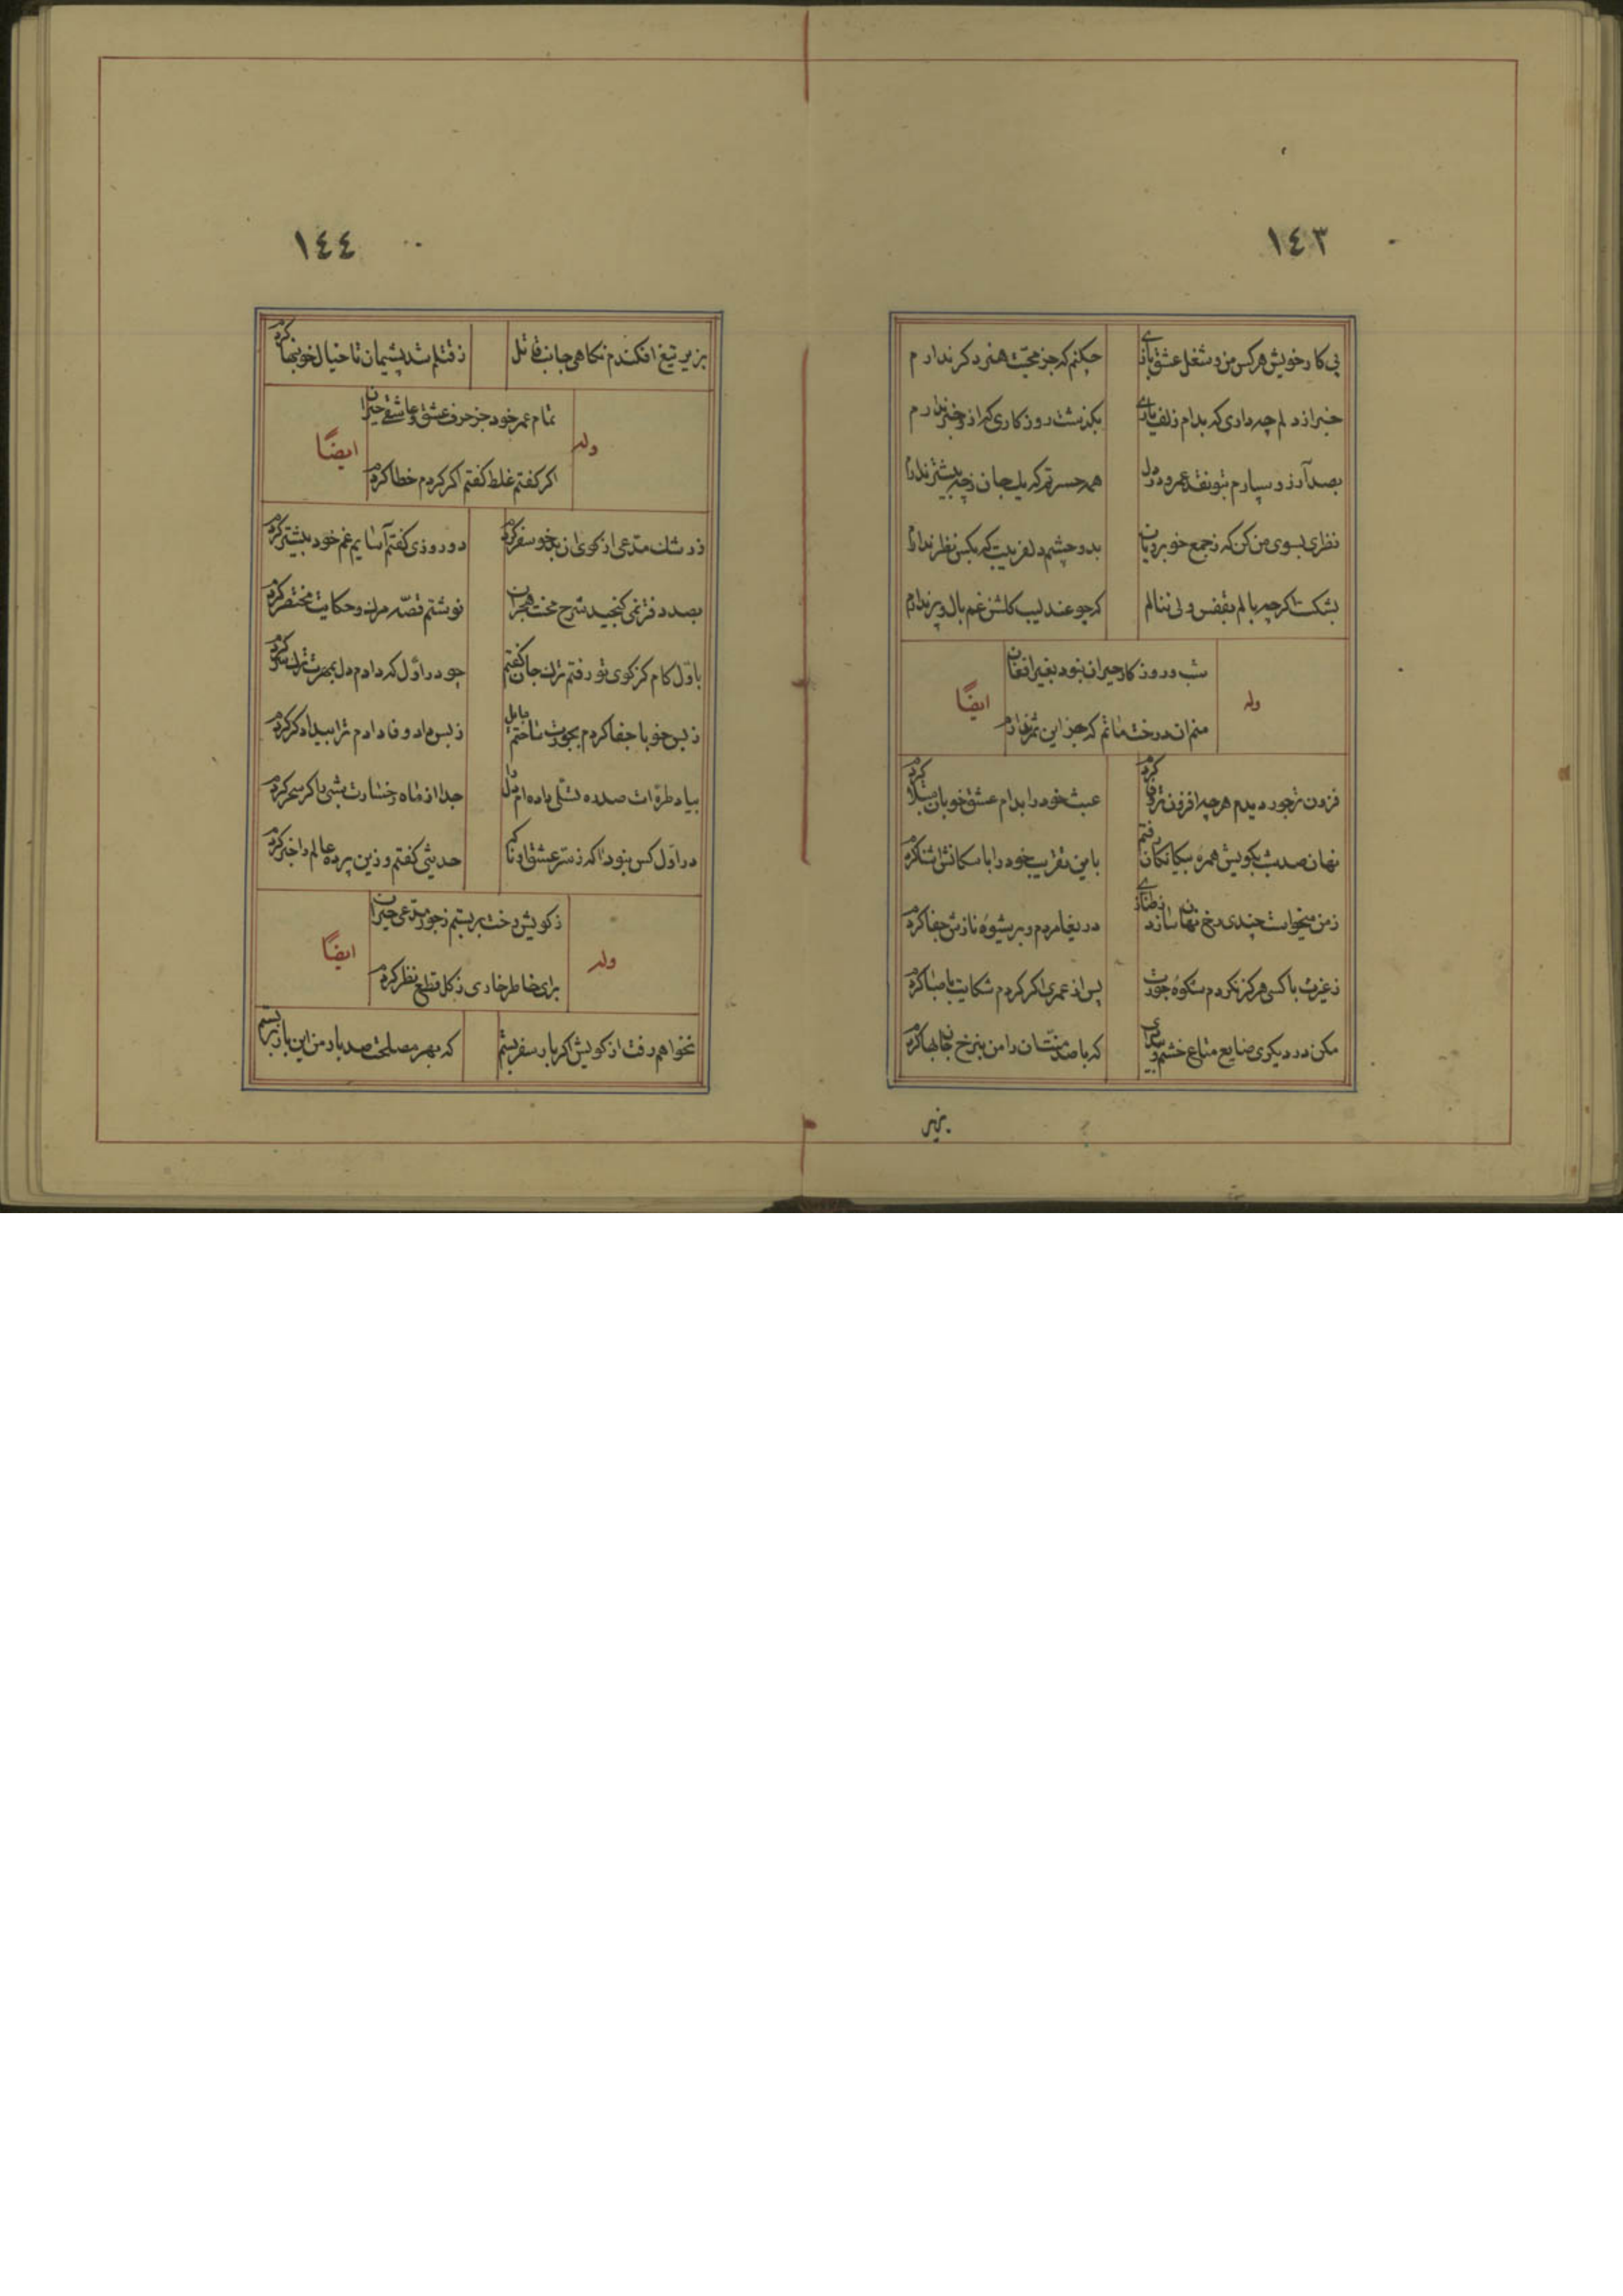 ١٤٣
پی کار خویش هر کس من و شغل عشق بازی
چکنم که جز محبّت هنر دکر ندارم
خبر از دلم چه داری که بدام زلف یاری
بکذشت روزکاری که ازو خبر ندارم
بصد آرزو سپارم بتو نقد عمر و در دل
همه حسرتم که یک جان زچه بیشتر ندارم
نظری بسوی من کن که ز جمع خوبرویان
بدو چشم دلفریبت که بکس نظر ندارم
بشکست اکرچه بالم بقفس ولی ننالم
که چو عندلیب کلشن غم بال و پر ندارم
شب و روز کار حیران نبود بغیر افغان
منم آن درخت ماتم که جز این ثمر ندارم
وله
ایضًا
فزون تر جور دیدم هرچه افزون تر وفا کردم
عبث خود را بدام عشق خوبان مبتلا کردم
نهان صد شب بکویش همره بیکانکان رفتم
باین تقریب خود را با سکانش آشنا کردم
زمن میخواست چندی رخ نهان سازد ز طنازی
در یغا مردم و بر شیوه نازش جفا کردم
ز غیرت با کسی هرکز نکردم شکوه جورت
پس از عمری اکر کردم شکایت با صبا کردم
مکن در دیکری ضایع متاع خشم و
که با صد منّت آن را من بنرخ جان بها کردم
بزیر
١٤٤
بزیر تیغ افکندم نکاهی جانب قاتل
ز قتلم شد پشیمان تا خیال خونبها کردم
تمام عمر خود جز حرف عشق و عاشقی حیران
اکر کفتم غلط کفتم اکر کردم خطا کردم
وله
ایضًا
ز رشک مدّعی از کوی آن بدخو سفر کردم
دو روزی کفتم آسایم غم خود بیشتر کردم
بصد دفتر نمی کنجید شرح محنت هجران
نوشتم قصّه مرک و حکایت مختصر کردم
باوّل کام کز کوی تو رفتم ترک جان کفتم
چو در اوّل که دادم دل بمهرت ترک سر کردم
ز بس خو با جفا کردم بجورت ساختم مایل
ز بس داد وفا دادم ترا بیدادکر کردم
بیاد طرّه ات صد ره تسلّی داده ام دل را
جدا از ماه رخسارت شبی با کر سحر کردم
در اوّل کس نبود آکه ز سرّ عشق او
حدیثی کفتم و زین پرده عالم را خبر کردم
ز کویش رخت بر بستم ز جور مدّعی حیران
برای خاطر خاری ز کل قطع نظر کردم
وله
ایضًا
نخواهم رفت از کویش اکر بار سفر بستم
که بهر مصلحت صد بار من این بار بر بستم